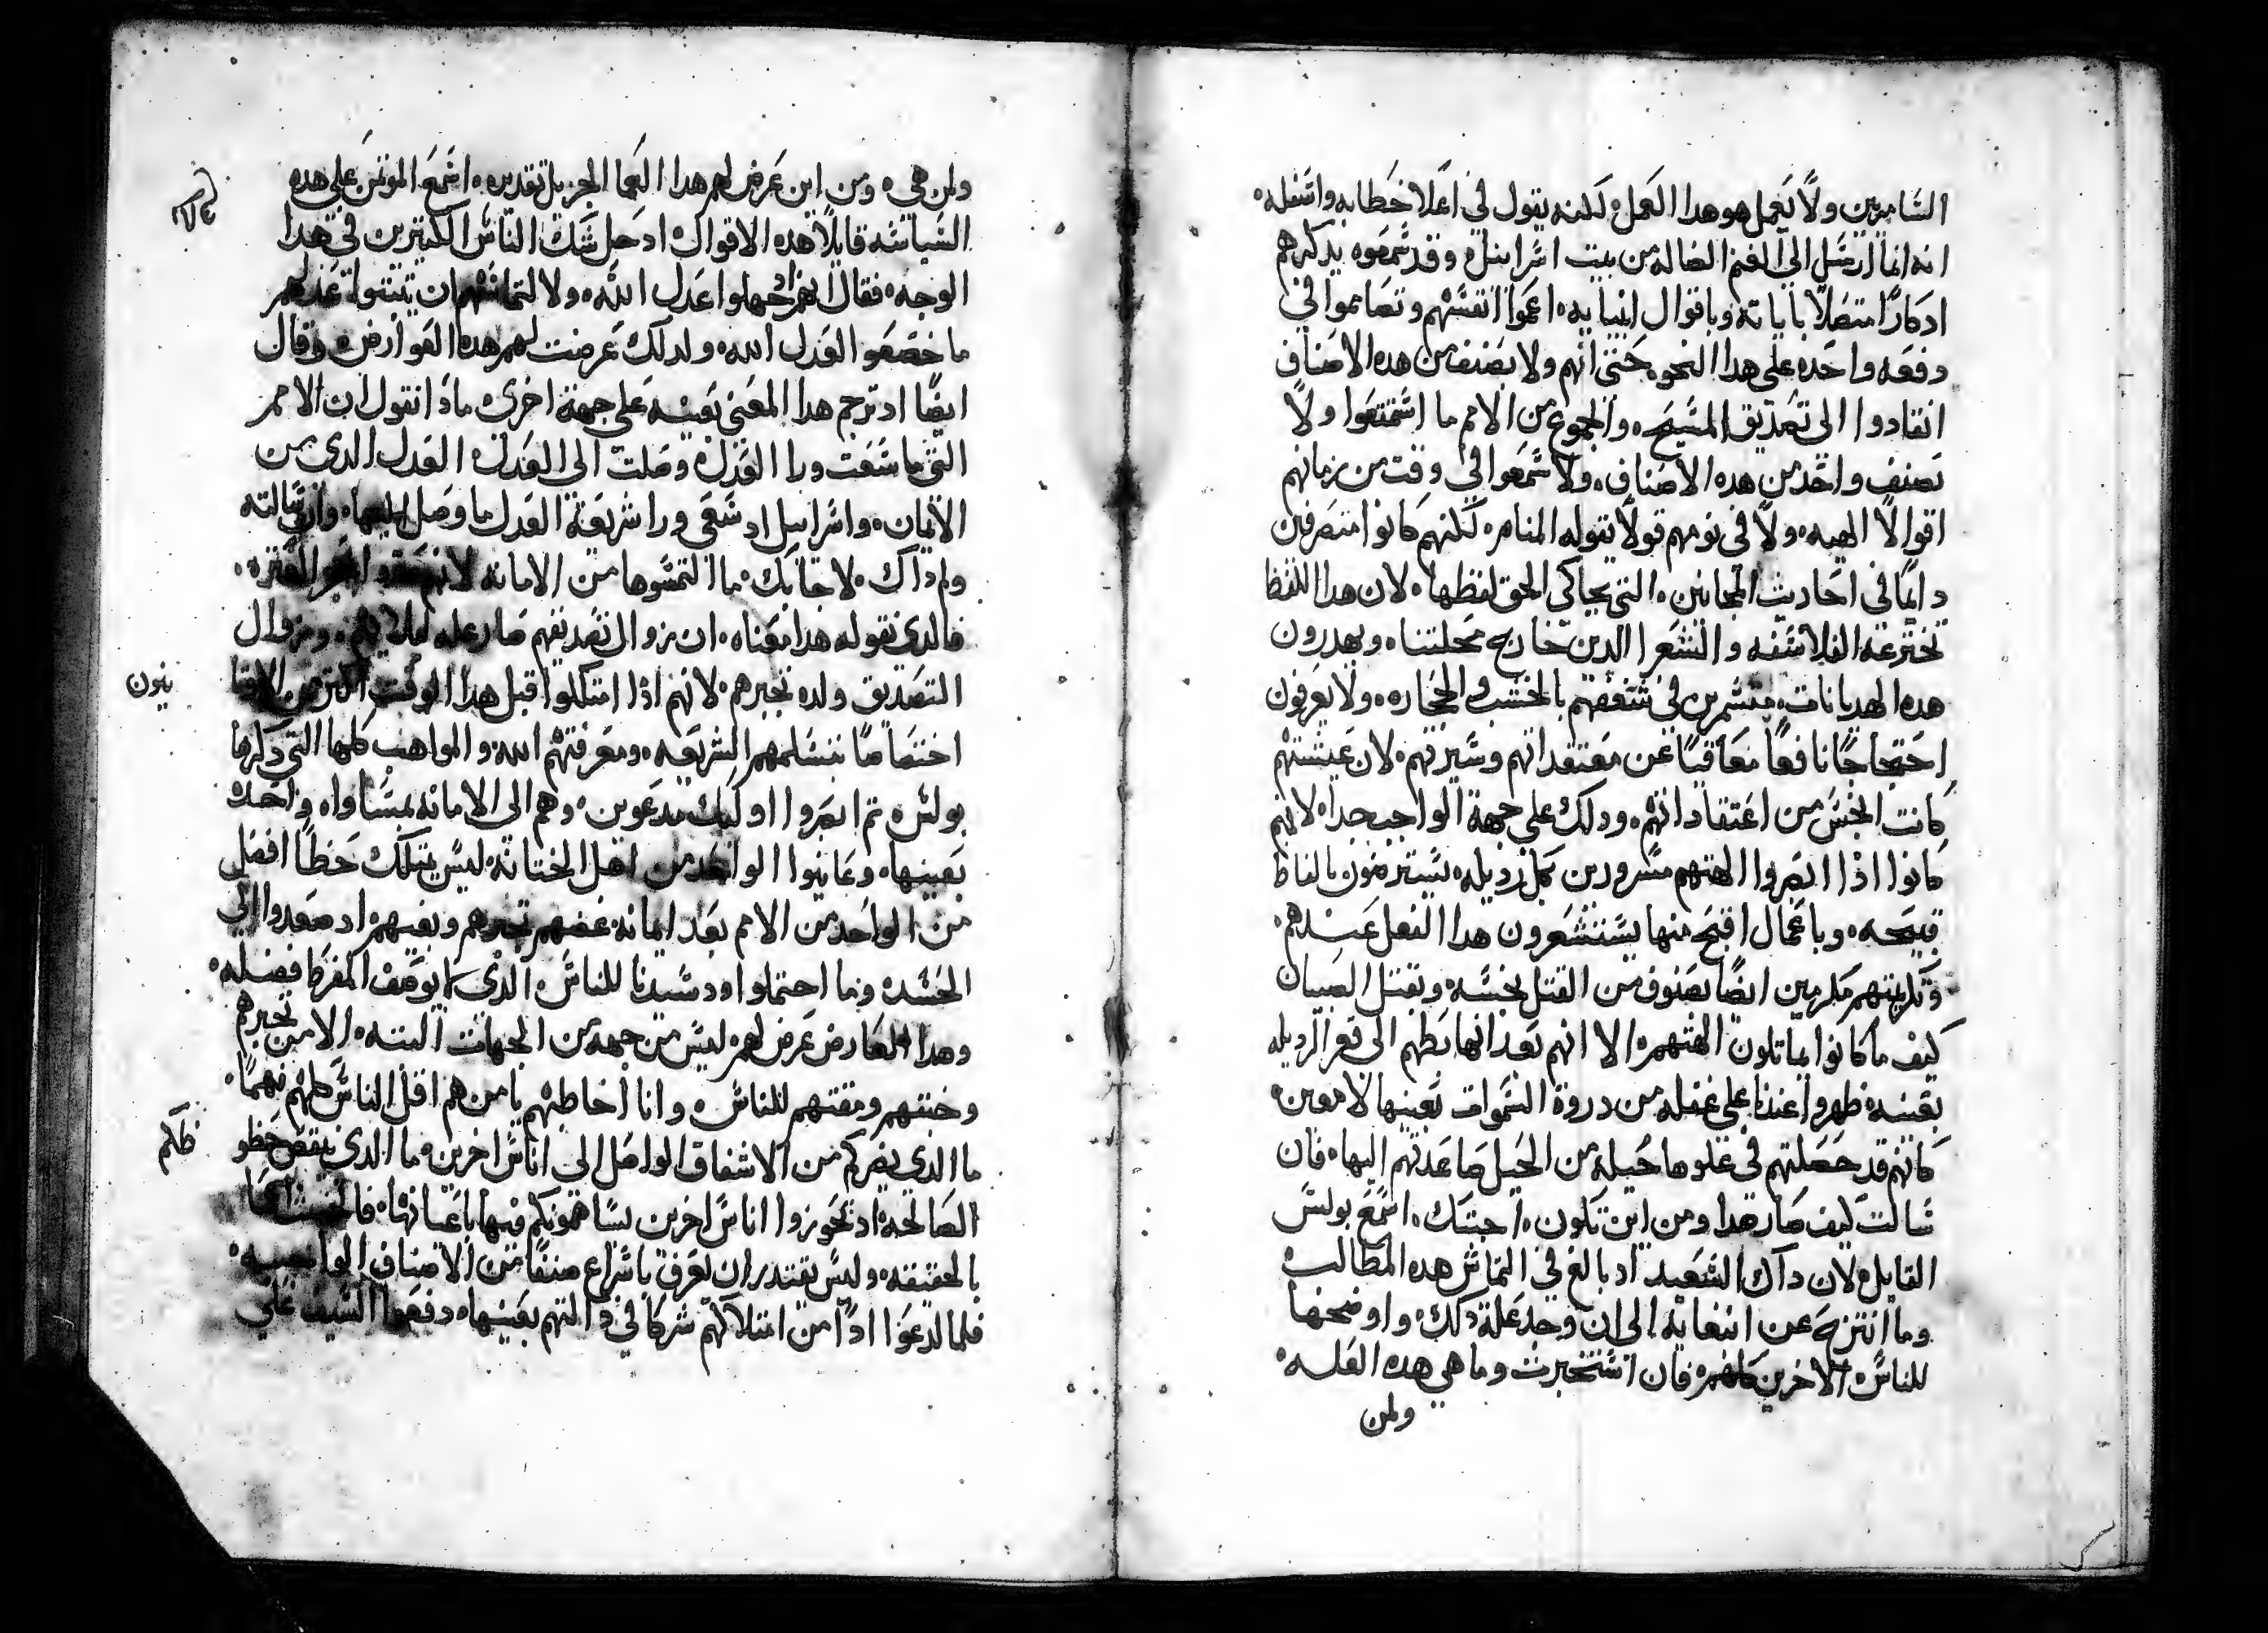 السامريين ولا يعمل هو هذا العمل لكنه يقول في اعلا خطابه واسفله
انه انما ارسل الى الغنم الضاله من بيت اسراييل وقد سمعوه يدكرهم
ادكارًا متصلًا باياته وباقوال انبيايه اعموا انفسهم وتصامموا في
دفعه واحده على هدا النحو حتى انهم ولا بصنف من هده الاصناف
انقادوا الى تصديق المسيح والجموع من الامم ما استمتعوا ولا
بصنف واحد من هده الاصناف ولا سمعوا في وقت من زمانهم
اقوالًا الهيه ولا في نومهم قولًا تقوله المنام لكنهم كانوا متصرفين
دايمًا في احاديث المجانين التي يحاكي الحق لفظها لان هدا اللفظ
تخترعه الفلاسفه والشعرا الدين خارج محلتنا ويهدرون
هده الهديانات متسمرين في شغفهم بالخشب والحجاره ولا يعرفون
احتجاجًا نافعًا معافيًا عن معتقداتهم وسيرتهم لان عيشتهم
كانت انجس من اعتقاداتهم ودلك على جهة الواجب جدا لانهم
كانوا ادا ابصروا الهتهم مسرورين بكل رديله يسترضون بالفاظ
قبيحه وباعمال اقبح منها يستشعرون هدا الفعل عندهم
وتكريمهم مكرمين ايضًا بصنوف من القتل نجسه وبقتل الصبيان
كيف ما كانوا يماتلون الهتهم الا انهم بعد انهباطهم الى قعر الرديله
بعينه ظهروا عندنا على غفله من دروة السموات بعينها لامعين
كانهم قد حصلتهم في علوها حيله من الحيل صاعدتهم اليها فان
سالت كيف صار هدا ومن اين تكون اجبتك اسمع بولس
القايل لان داك السعيد اد بالغ في التماس هده المطالب
وما انتزح عن ابتغايه الى ان وجد علة دلك واوضحها
للناس الاخرين كلهم فان استخبرت وما هي هده العله
ولمن
ولمن هي ومن اين عرض لهم هدا العما الجزيل تقديره اسمع الموتمن على هده
السياسه قايلًا هده الاقوال ادحل شك الناس الكتيرين في هدا
الوجه فقال انهم اد جهلوا عدل الله ولا لتماسهم ان يتبتوا عدلهم
ما خضعوا لعدل الله ولدلك عرضت لهم هده العوارض وقال
ايضًا اد ترجم هدا المعنى بعينه على جهة اخرى مادا نقول ان الامم
التي ما سعت ورا العدل وصلت الى العدل العدل الدي من
الايمان واسراييل اد سعى ورا شريعة العدل ما وصل اليها وان سالته
ولم داك لاجابك ما التمسوها من الامانه لانهم
فالدي نقوله هدا معناه ان زوال تصديقهم صار عله ومن وال
التصديق ولده تجبرهم لانهم ادا امتلكوا قبل هدا الوقت اكتر من الاقتا
اختصاصًا بتسلمهم الشريعه ومعرفتهم الله والمواهب كلها التي دكرها
بولس تم ابصروا اوليك مدعوين وهم الى الامانه بمساواه واحده
بعينها وعاينوا الواحد من اهل الختانه ليس يمتلك حظًا افضل
من الواحد من الامم بعد ايمانه تجبرهم وبغيهم اد صعدوا الى
الحسد وما احتملوا ود سيدنا للناس الدي لا يوصف المفرط فضله
وهدا العارض عرض لهم ليس من جهه من الجهات البته الا من تجبرهم
وخبتهم ومقتهم للناس وانا اخاطبهم يا من هم اقل الناس كلهم فهمًا
ما الدي يضركم من الاشفاق الواصل الى اناس اخرين ما الدي ينقص حظو
الصالحه اد تحوزوا اناسًا اخرين يساهمونكم فيها باعيانها
بالحقيقه وليس يقتدر ان يعرف باسراع صنفًا من الاصناف
فلما لدعوا ادًا من امتلاكهم شركا في دالتهم بعينها دفعوا السيف على
ينون
ظكم